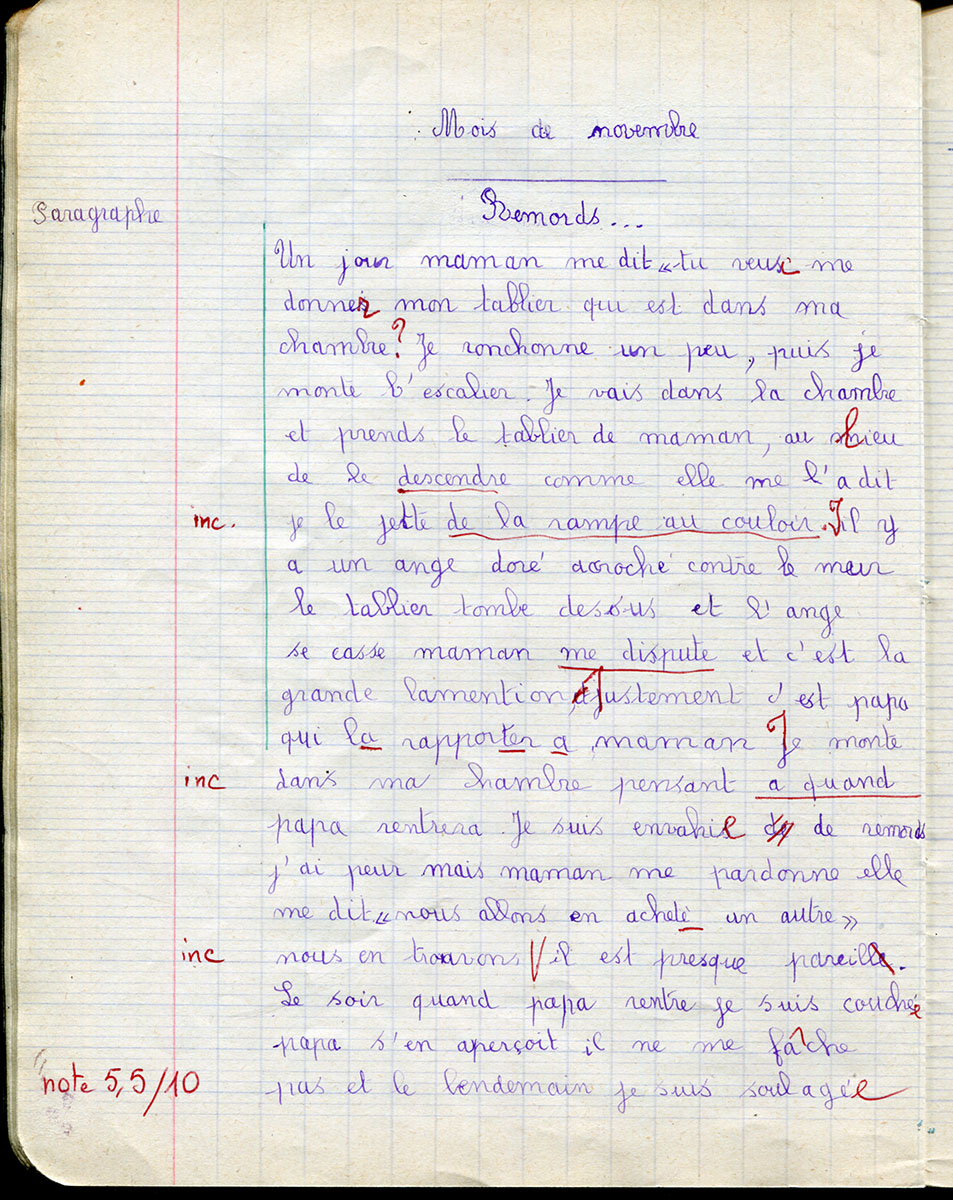 Mois de novembre
Paragraphe
Remords...
Un jour maman me dit « tu veux me
donner mon tablier qui est dans ma
chambre? Je ronchonne un peu, puis je
monte l'escalier. Je vais dans la chambre
et prends le tablier de maman, au lieu
de le descendre comme elle me l'a dit
inc. je le jette de la rampe au couloir. Il y
a un ange doré acroché contre le mur
le tablier tombe dessus et l'ange
se casse maman me dispute et c'est la
grande lamention, justement c'est papa
qui la rapporter a maman Je monte
inc dans ma chambre pensant a quand
papa rentrera. Je suis envahie de remords
j'ai peur mais maman me pardonne elle
me dit « nous allons en acheté un autre »
inc nous en trouvons il est presque pareil.
Le soir quand papa rentre je suis couchée
papa s'en aperçoit il ne me fâche
note 5,5/10 pas et le lendemain je suis soulagée